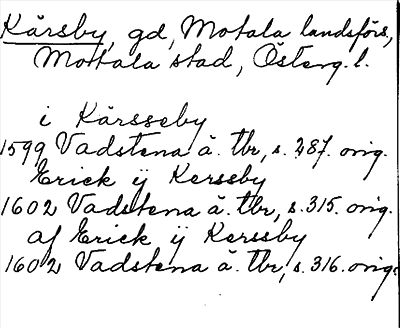 Kärsby, gd, Motala landsförs,
Motala stad, Österg. l.
i Kärsseby
1599 Vadstena ä. tbr, s. 287. orig.
Erick ij Kerssby
1602 Vadstena ä. tbr, s. 315. orig.
af Erick ij Kerssby
1602 Vadstena ä. tbr, s. 316. orig.